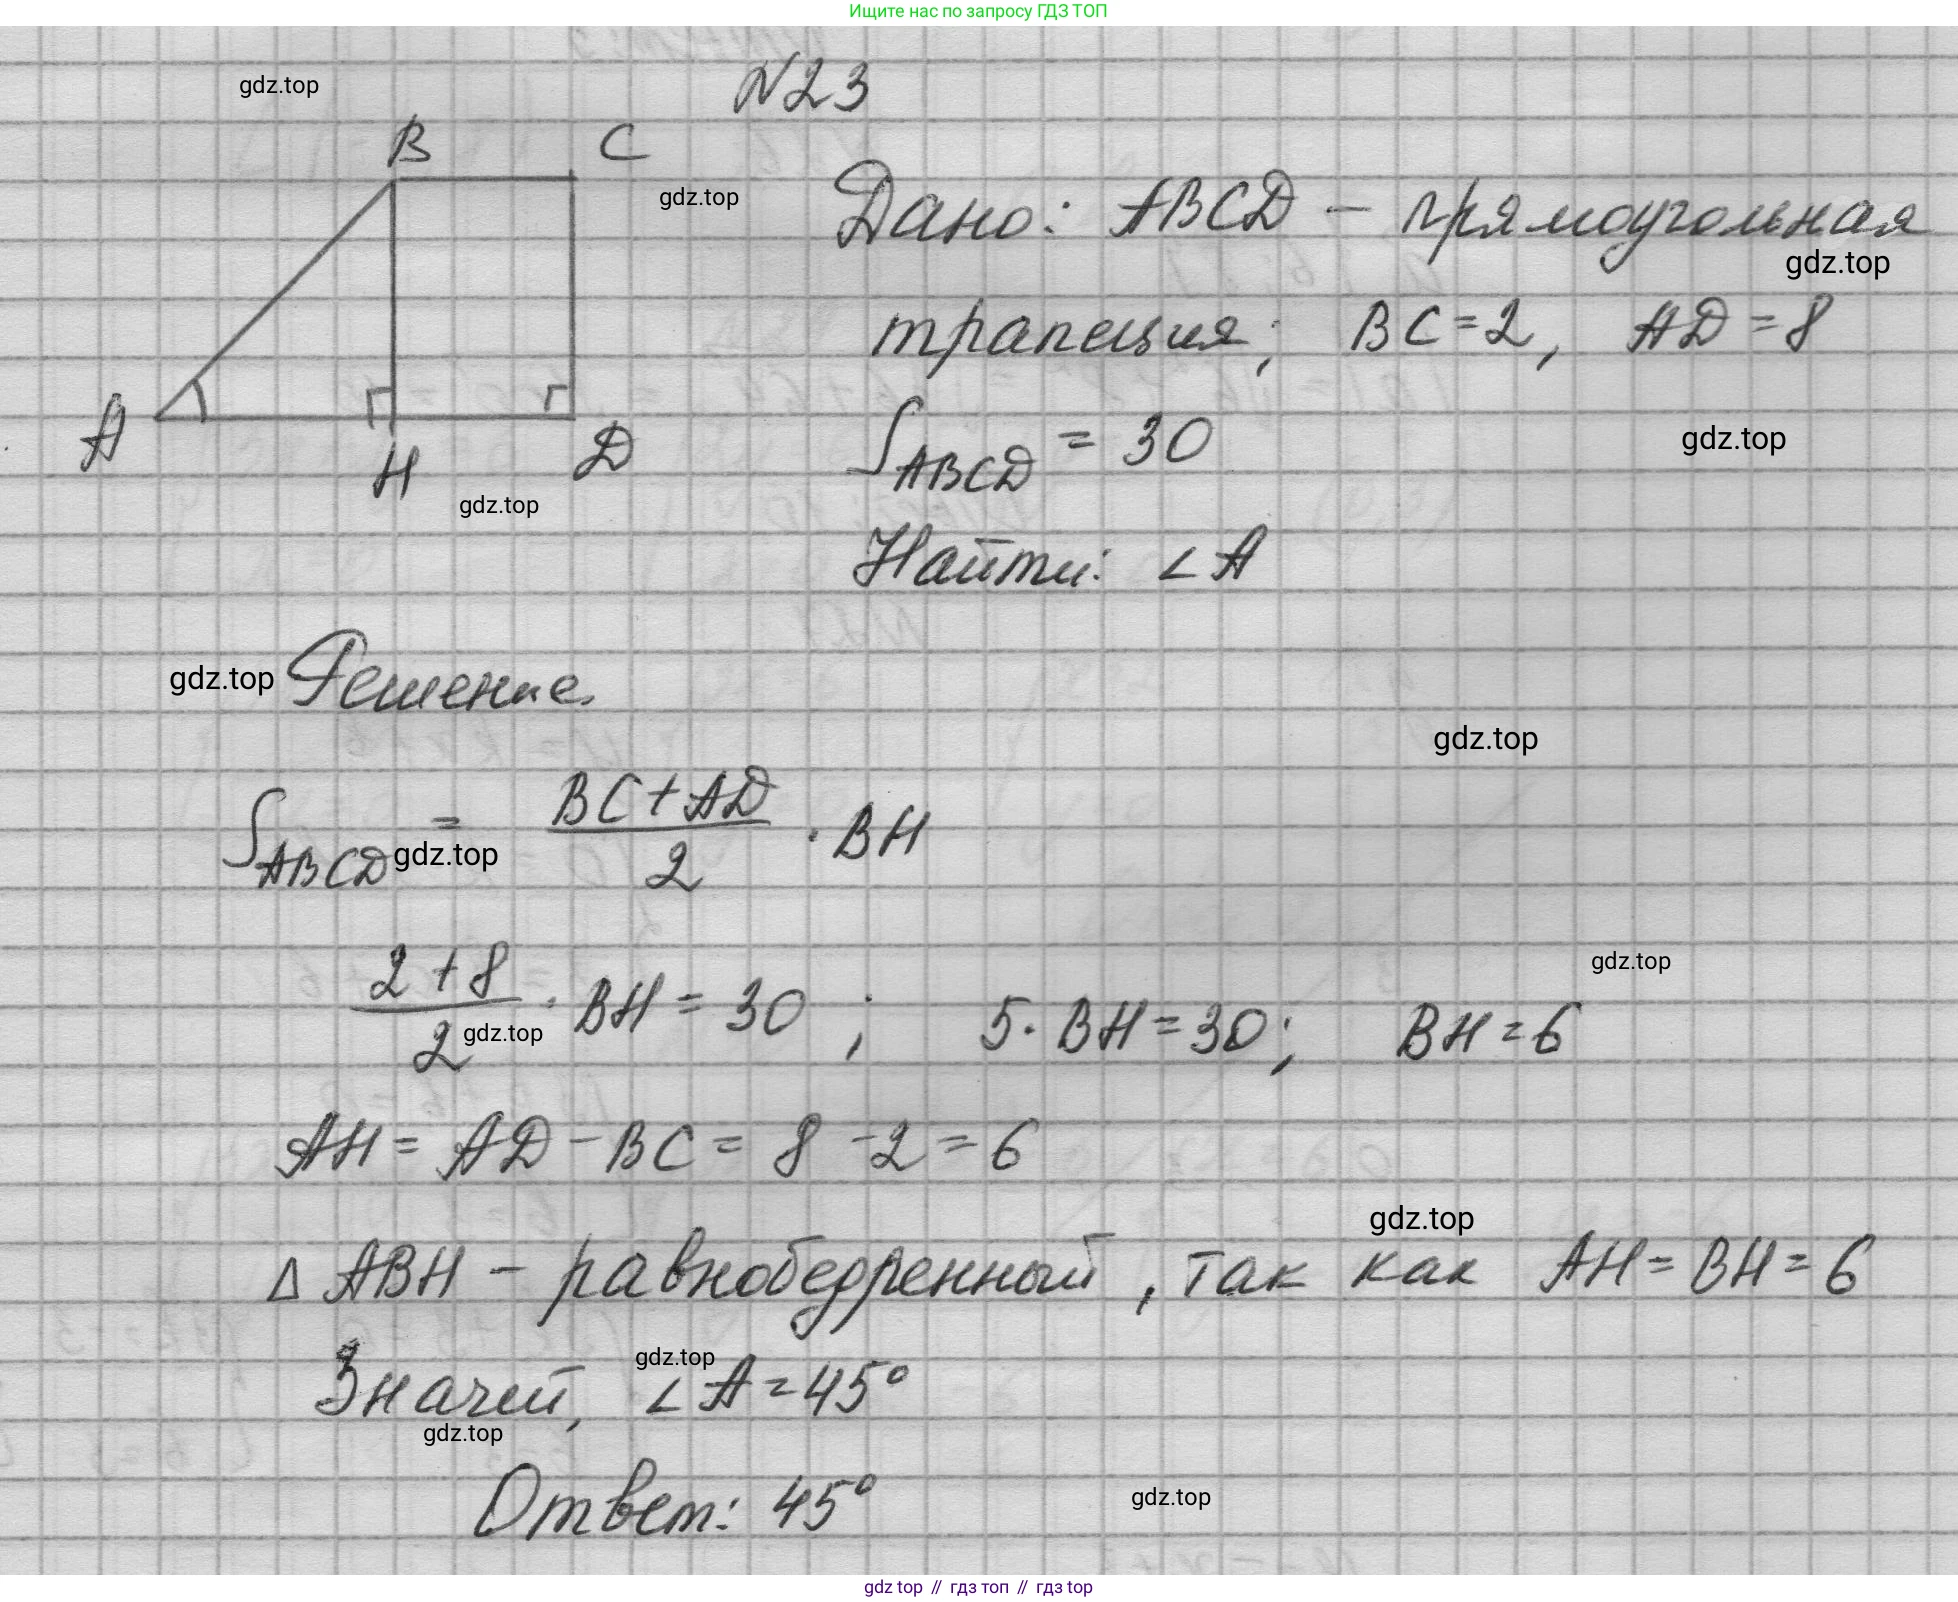 Ищите нас по запросу ГДЗ ТОП
gdz.top
N23
B C
gdz.top
Дано: ABCD - прямоугольная
gdz.top
трапеция; BC=2, AD=8
A H D
gdz.top
S ABCD = 30
gdz.top
Найти: ∠A
gdz.top
Решение.
gdz.top
S ABCD = (BC+AD)/2 · BH
gdz.top
gdz.top
(2+8)/2 · BH = 30 ; 5·BH=30; BH=6
gdz.top
AH = AD - BC = 8 - 2 = 6
gdz.top
Δ ABH - равнобедренный, так как AH=BH=6
gdz.top
Значит, ∠A=45°
gdz.top
Ответ: 45°
gdz.top
gdz top // гдз топ // гдз top